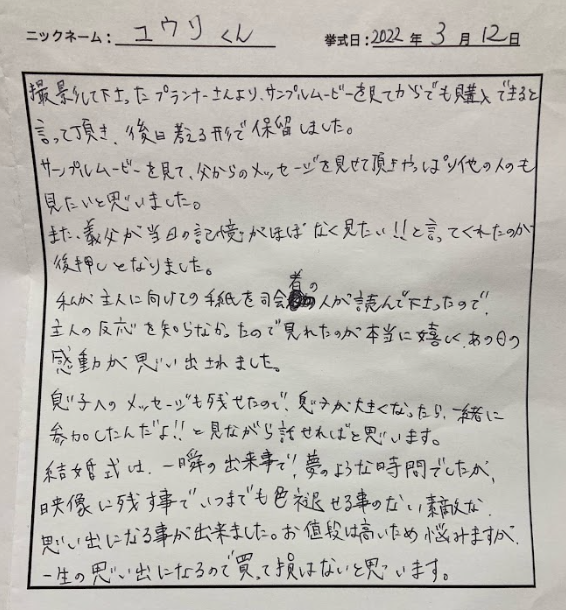 ニックネーム: ユウリくん 挙式日: 2022 年 3 月 12 日
撮影して下さったプランナーさんより、サンプルムービーを見てからでも購入できると
言って頂き、後日考える形で保留しました。
サンプルムービーを見て、父からのメッセージを見せて頂きやっぱり他の人のも
見たいと思いました。
また、義父が当日の記憶がほぼなく見たい!!と言ってくれたのが
後押しとなりました。
私が主人に向けての手紙を司会者の人が読んで下さったので、
主人の反応を知らなかったので見れたのが本当に嬉しく、あの日の
感動が思い出されました。
息子へのメッセージも残せたので、息子が大きくなったら、一緒に
参加したんだよ!!と見ながら話せればと思います。
結婚式は、一瞬の出来事で夢のような時間でしたが、
映像に残す事でいつまでも色褪せる事のない素敵な
思い出になる事が出来ました。お値段は高いため悩みますが、
一生の思い出になるので買って損はないと思います。